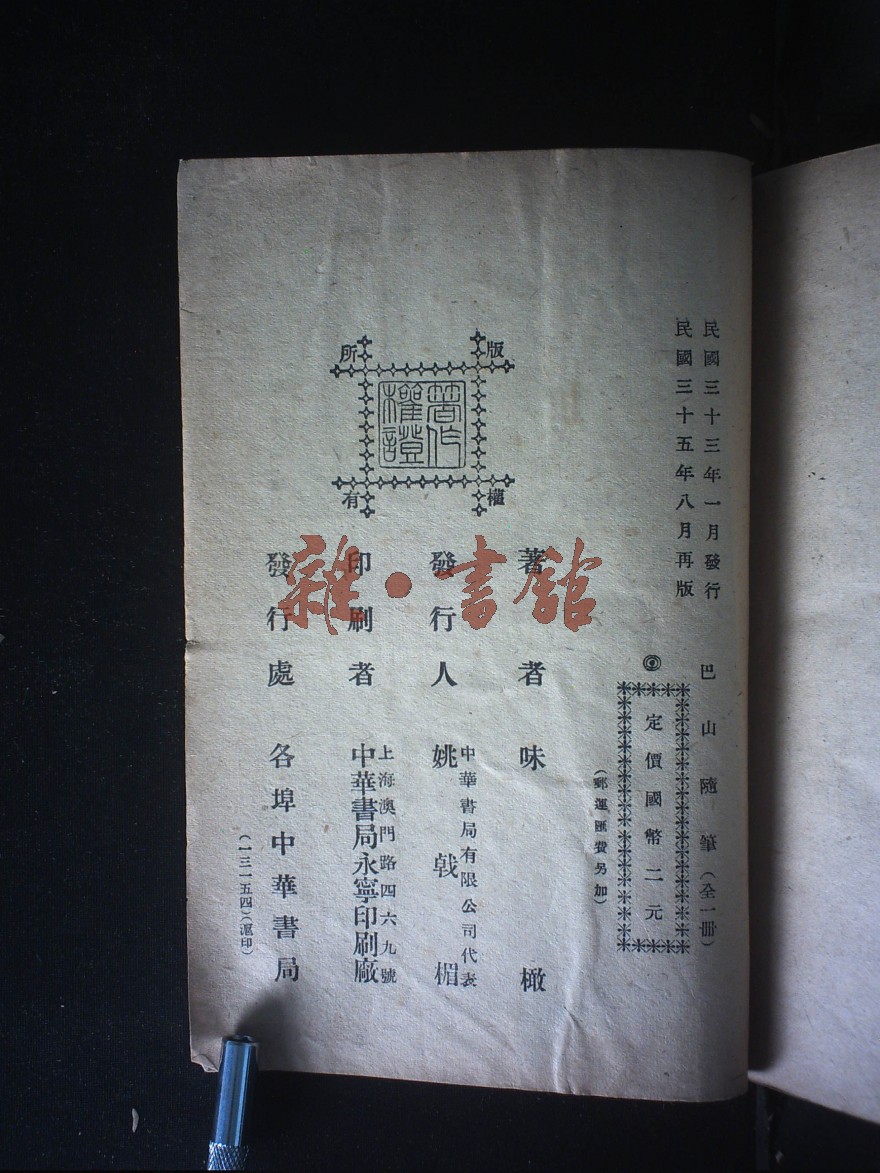 民國三十三年一月發行
民國三十五年八月再版
巴山隨筆（全一冊）
定價國幣二元
（郵運匯費另加）
版權所有
著作權證
著者 味橄
發行人 中華書局有限公司代表
姚戟楣
印刷者 上海澳門路四六九號
中華書局永寧印刷廠
發行處 各埠中華書局
（一三一五四）（滬印）
雜·書館